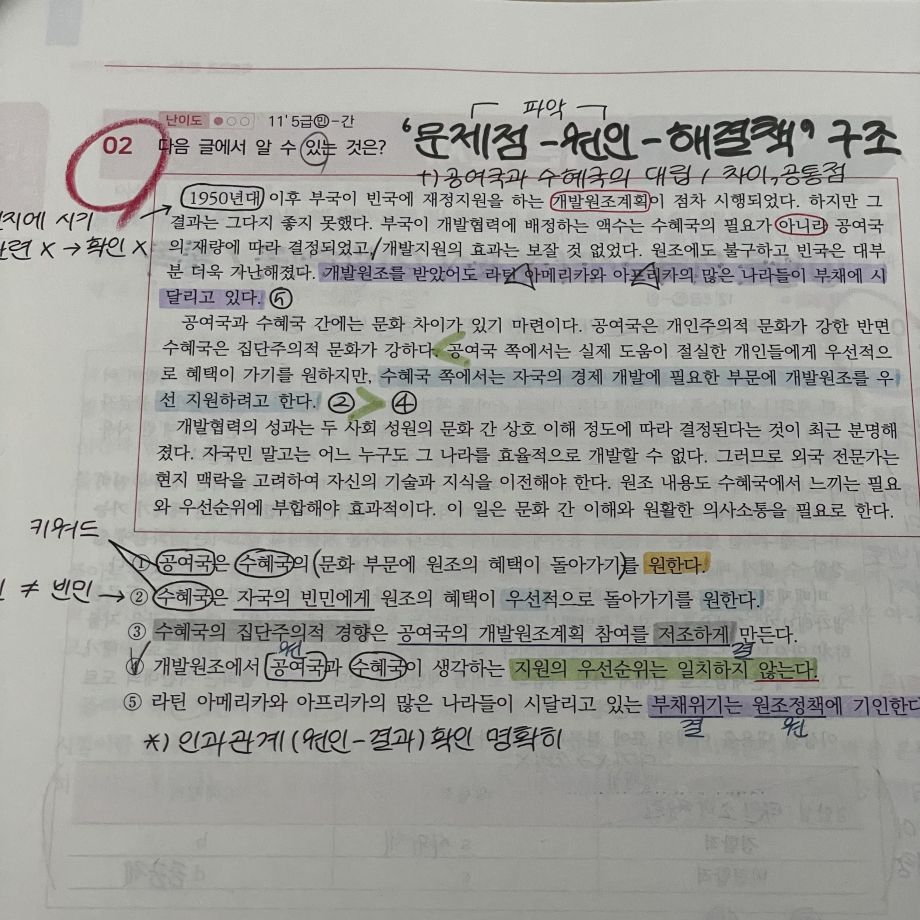 난이도 11' 5급(민)-간
파악
02 다음 글에서 알 수 있는 것은? '문제점-원인-해결책' 구조
+) 공여국과 수혜국의 대립 / 차이, 공통점
1950년대 이후 부국이 빈국에 재정지원을 하는 개발원조계획이 점차 시행되었다. 하지만 그
결과는 그다지 좋지 못했다. 부국이 개발협력에 배정하는 액수는 수혜국의 필요가 아니라 공여국
의 재량에 따라 결정되었고, 개발지원의 효과는 보잘 것 없었다. 원조에도 불구하고 빈국은 대부
분 더욱 가난해졌다. 개발원조를 받았어도 라틴 아메리카와 아프리카의 많은 나라들이 부채에 시
달리고 있다. ⑤
선지에 시기
관련 X → 확인 X
공여국과 수혜국 간에는 문화 차이가 있기 마련이다. 공여국은 개인주의적 문화가 강한 반면
수혜국은 집단주의적 문화가 강하다. 공여국 쪽에서는 실제 도움이 절실한 개인들에게 우선적으
로 혜택이 가기를 원하지만, 수혜국 쪽에서는 자국의 경제 개발에 필요한 부문에 개발원조를 우
선 지원하려고 한다. ② ④
개발협력의 성과는 두 사회 성원의 문화 간 상호 이해 정도에 따라 결정된다는 것이 최근 분명해
졌다. 자국민 말고는 어느 누구도 그 나라를 효율적으로 개발할 수 없다. 그러므로 외국 전문가는
현지 맥락을 고려하여 자신의 기술과 지식을 이전해야 한다. 원조 내용도 수혜국에서 느끼는 필요
와 우선순위에 부합해야 효과적이다. 이 일은 문화 간 이해와 원활한 의사소통을 필요로 한다.
키워드
① 공여국은 수혜국의 (문화 부문에 원조의 혜택이 돌아가기)를 원한다.
≠ 빈민 →
② 수혜국은 자국의 빈민에게 원조의 혜택이 우선적으로 돌아가기를 원한다.
③ 수혜국의 집단주의적 경향은 공여국의 개발원조계획 참여를 저조하게 만든다.
원 결
④ 개발원조에서 공여국과 수혜국이 생각하는 지원의 우선순위는 일치하지 않는다.
⑤ 라틴 아메리카와 아프리카의 많은 나라들이 시달리고 있는 부채위기는 원조정책에 기인한다
결 원
*) 인과관계 (원인-결과) 확인 명확히